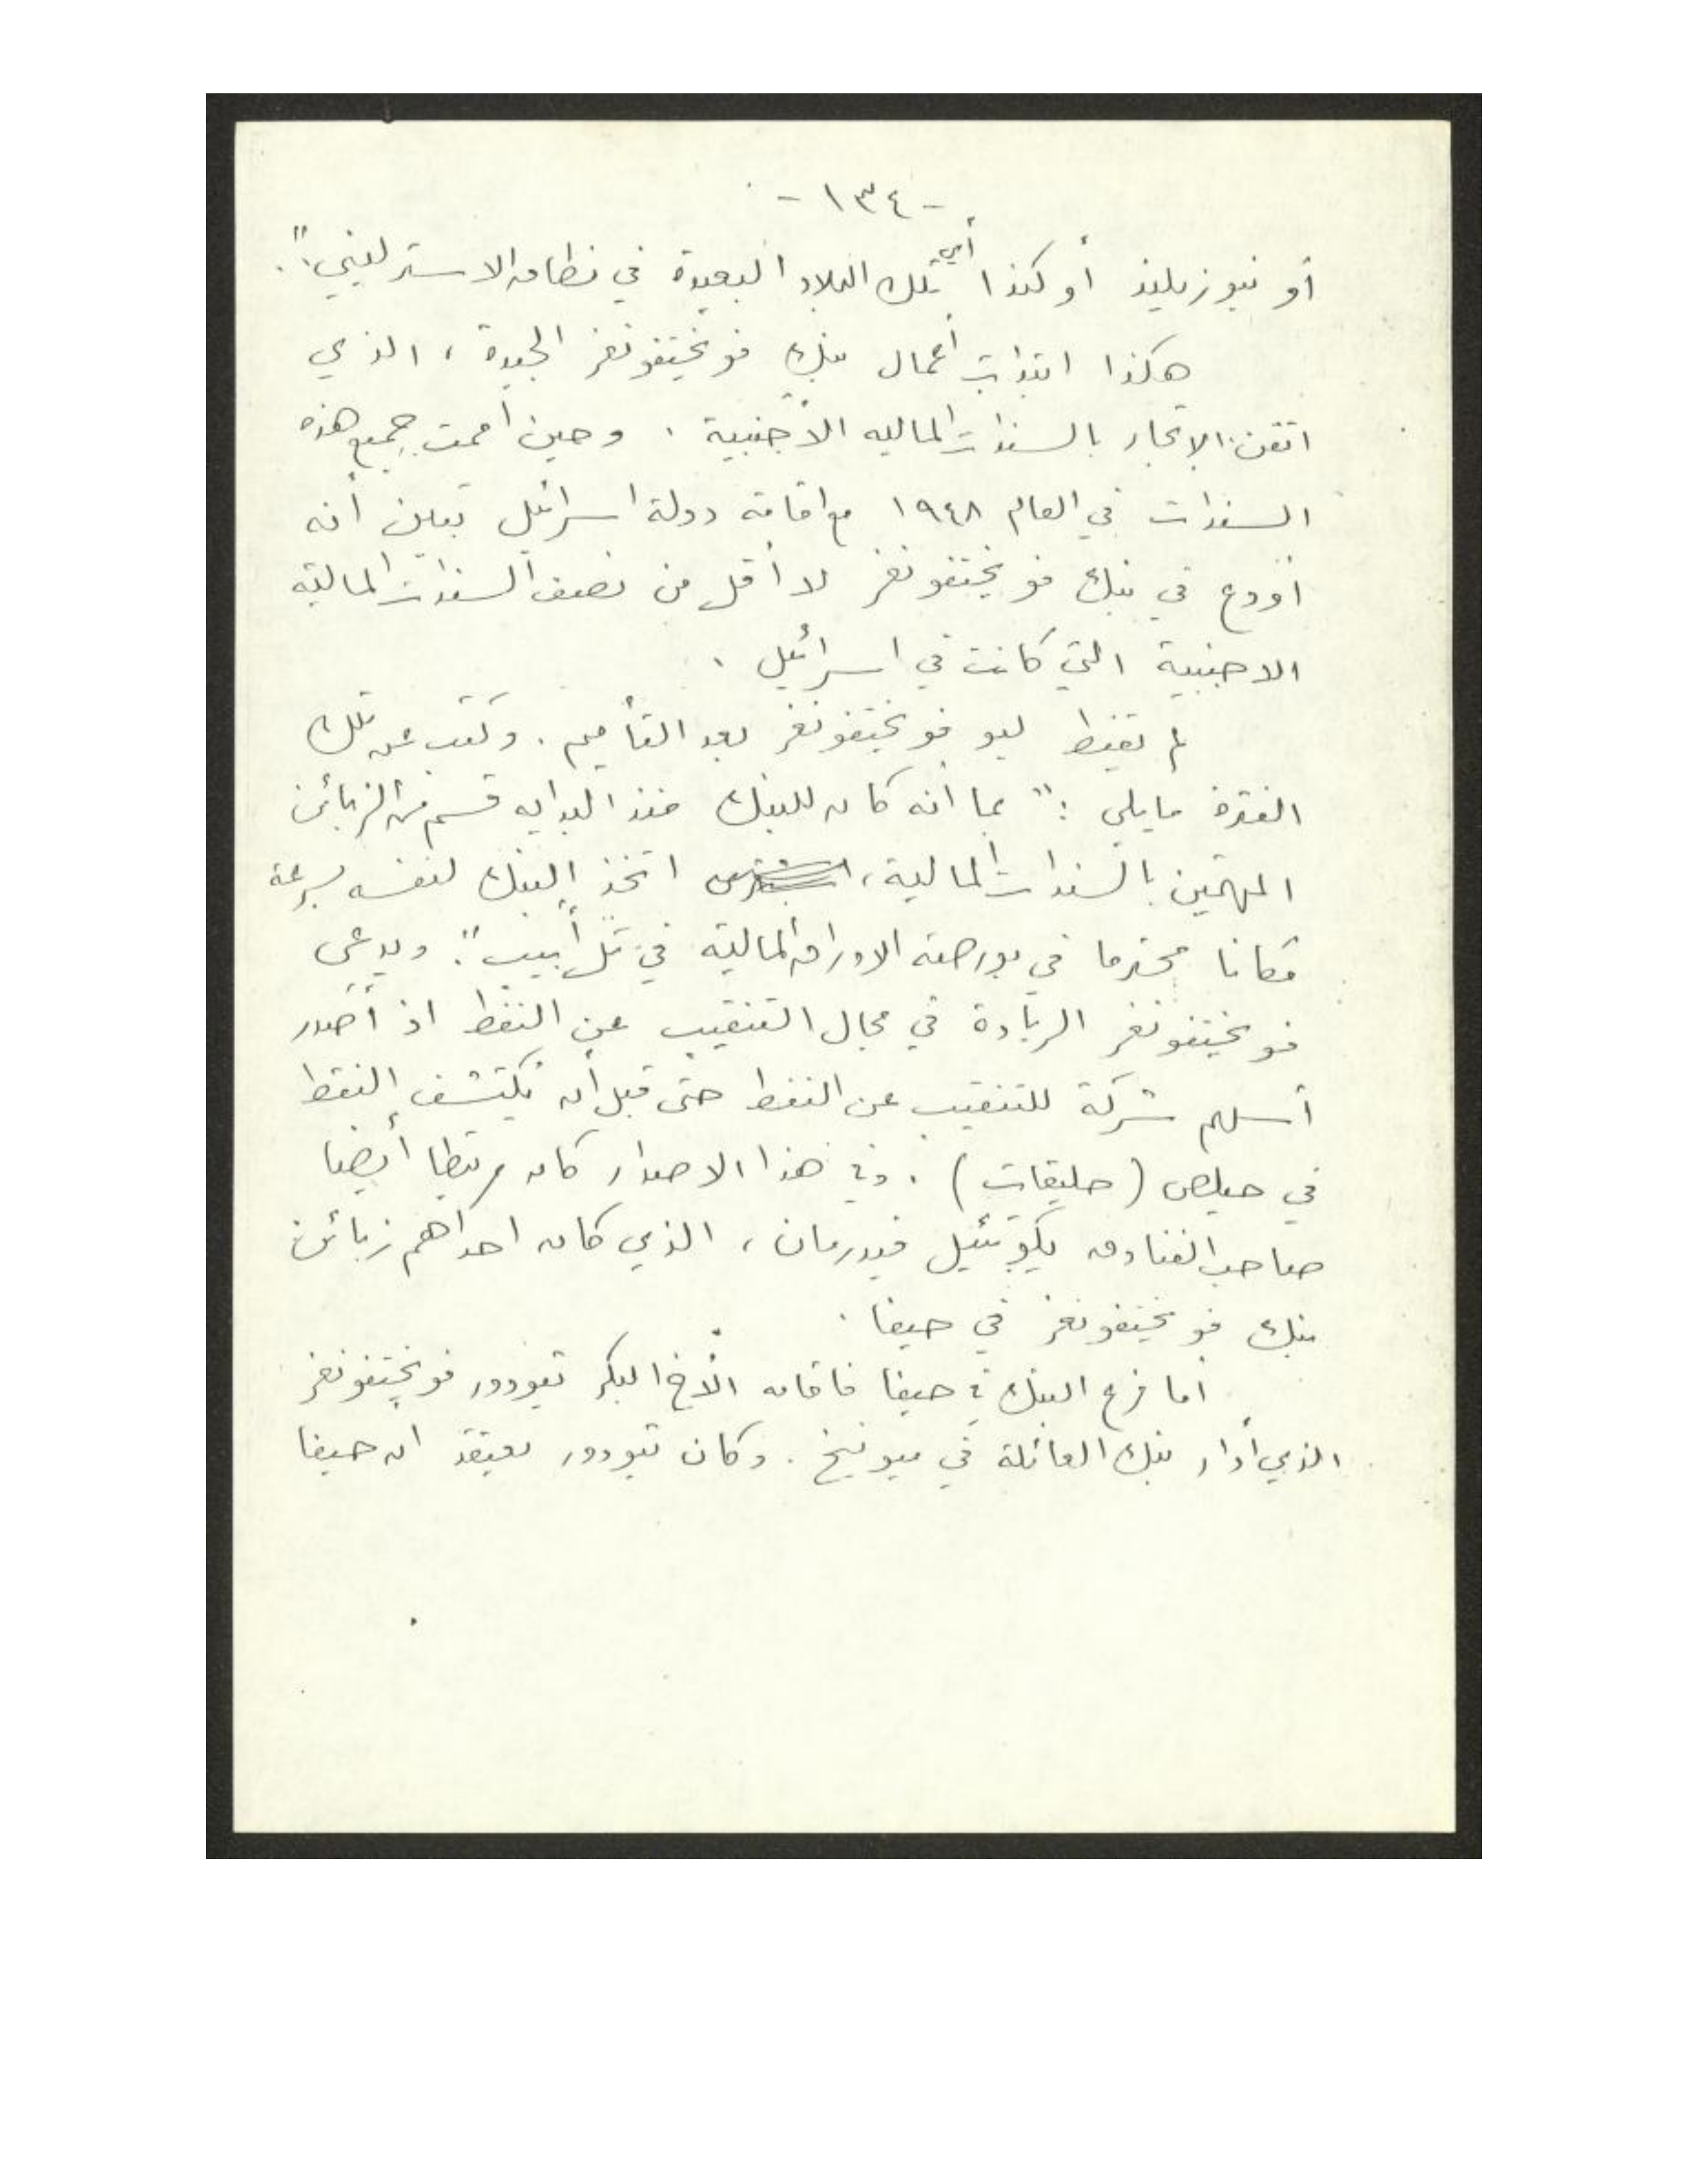 - ١٣٤ -
أو نيوزيلند أو كندا أي تلك البلاد البعيدة في نطاق الاسترليني".
هكذا ابتدأت أعمال بنك فويختفونغر الجيدة، الذي
اتقن الإتجار بالسندات المالية الأجنبية. وحين أممت جميع هذه
السندات في العام ١٩٤٨ مع اقامة دولة اسرائيل تبين أنه
أودع في بنك فويختفونغر لا أقل من نصف السندات المالية
الاجنبية التي كانت في اسرائيل.
لم يقنط ليو فويختفونغر بعد التأميم. وكتب عن تلك
الفترة مايلي: "بما أنه كان للبنك منذ البداية قسم من الزبائن
المهتمين بالسندات المالية، اتخذ البنك لنفسه بسرعة
مكانا محترما في بورصة الاوراق المالية في تل أبيب". ويدعي
فويختفونغر الريادة في مجال التنقيب عن النفط اذ أصدر
أسهم شركة للتنقيب عن النفط حتى قبل أن يكتشف النفط
في حيلص (حليقات). وفي هذا الاصدار كان مرتبطا أيضا
صاحب الفنادق يكوتئيل فيدرمان، الذي كان احد اهم زبائن
بنك فويختفونغر في حيفا.
أما فرع البنك في حيفا فاقامه الأخ البكر تيودور فويختفونغر
الذي أدار بنك العائلة في ميونيخ. وكان تيودور يعتقد ان حيفا